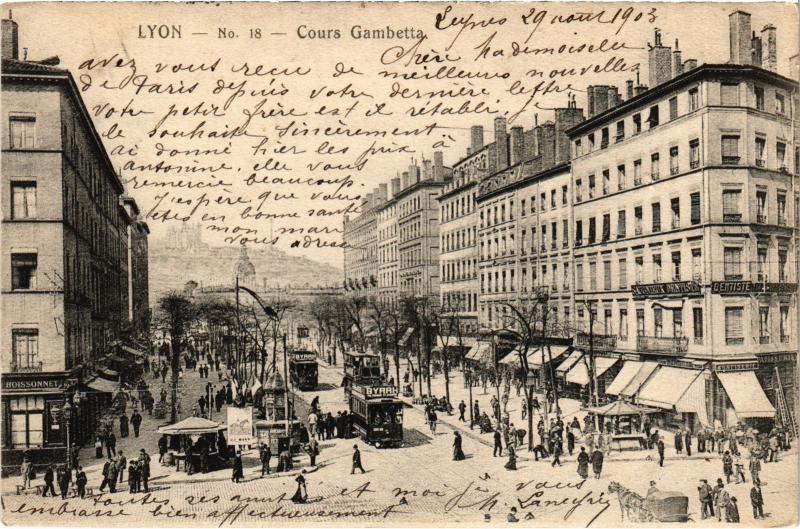 LYON — No. 18 — Cours Gambetta
29 août 1903
Chère Mademoiselle
avez vous recu de meilleures nouvelles
de Paris depuis votre dernière lettre
votre petit frère est il rétabli. je
le souhaite sincèrement.
ai donné hier les prix à
Antonine, elle vous
remercie beaucoup.
J'espère que vous
êtes en bonne santé
mon mari
vous adresse
toutes ses amitiés et moi je vous
embrasse bien affectueusement
BYRRH
BYRRH
BOISSONNET
DENTISTE
DENTISTE